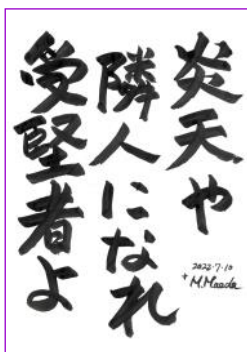 炎天や
隣人になれ
受堅者よ
2022・7・10
+M.Maeda